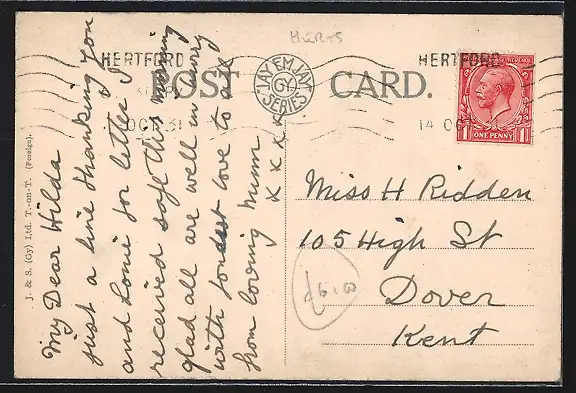 HERTS
HERTFORD
POST CARD.
JAY EM JAY
GY
SERIES
HERTFORD
OCT 31
14 OCT
REVENUE
1 1
ONE PENNY
J. & S. (Gy) Ltd. T.-on-T. (Foreign).
My Dear Hilda
just a line thanking you
and Lonie for letter I
received safe this morning
glad all are well in sorry
with fondest love to all
from loving Mum
x x x x x
Miss H Ridden
105 High St
Dover
Kent
£6.00